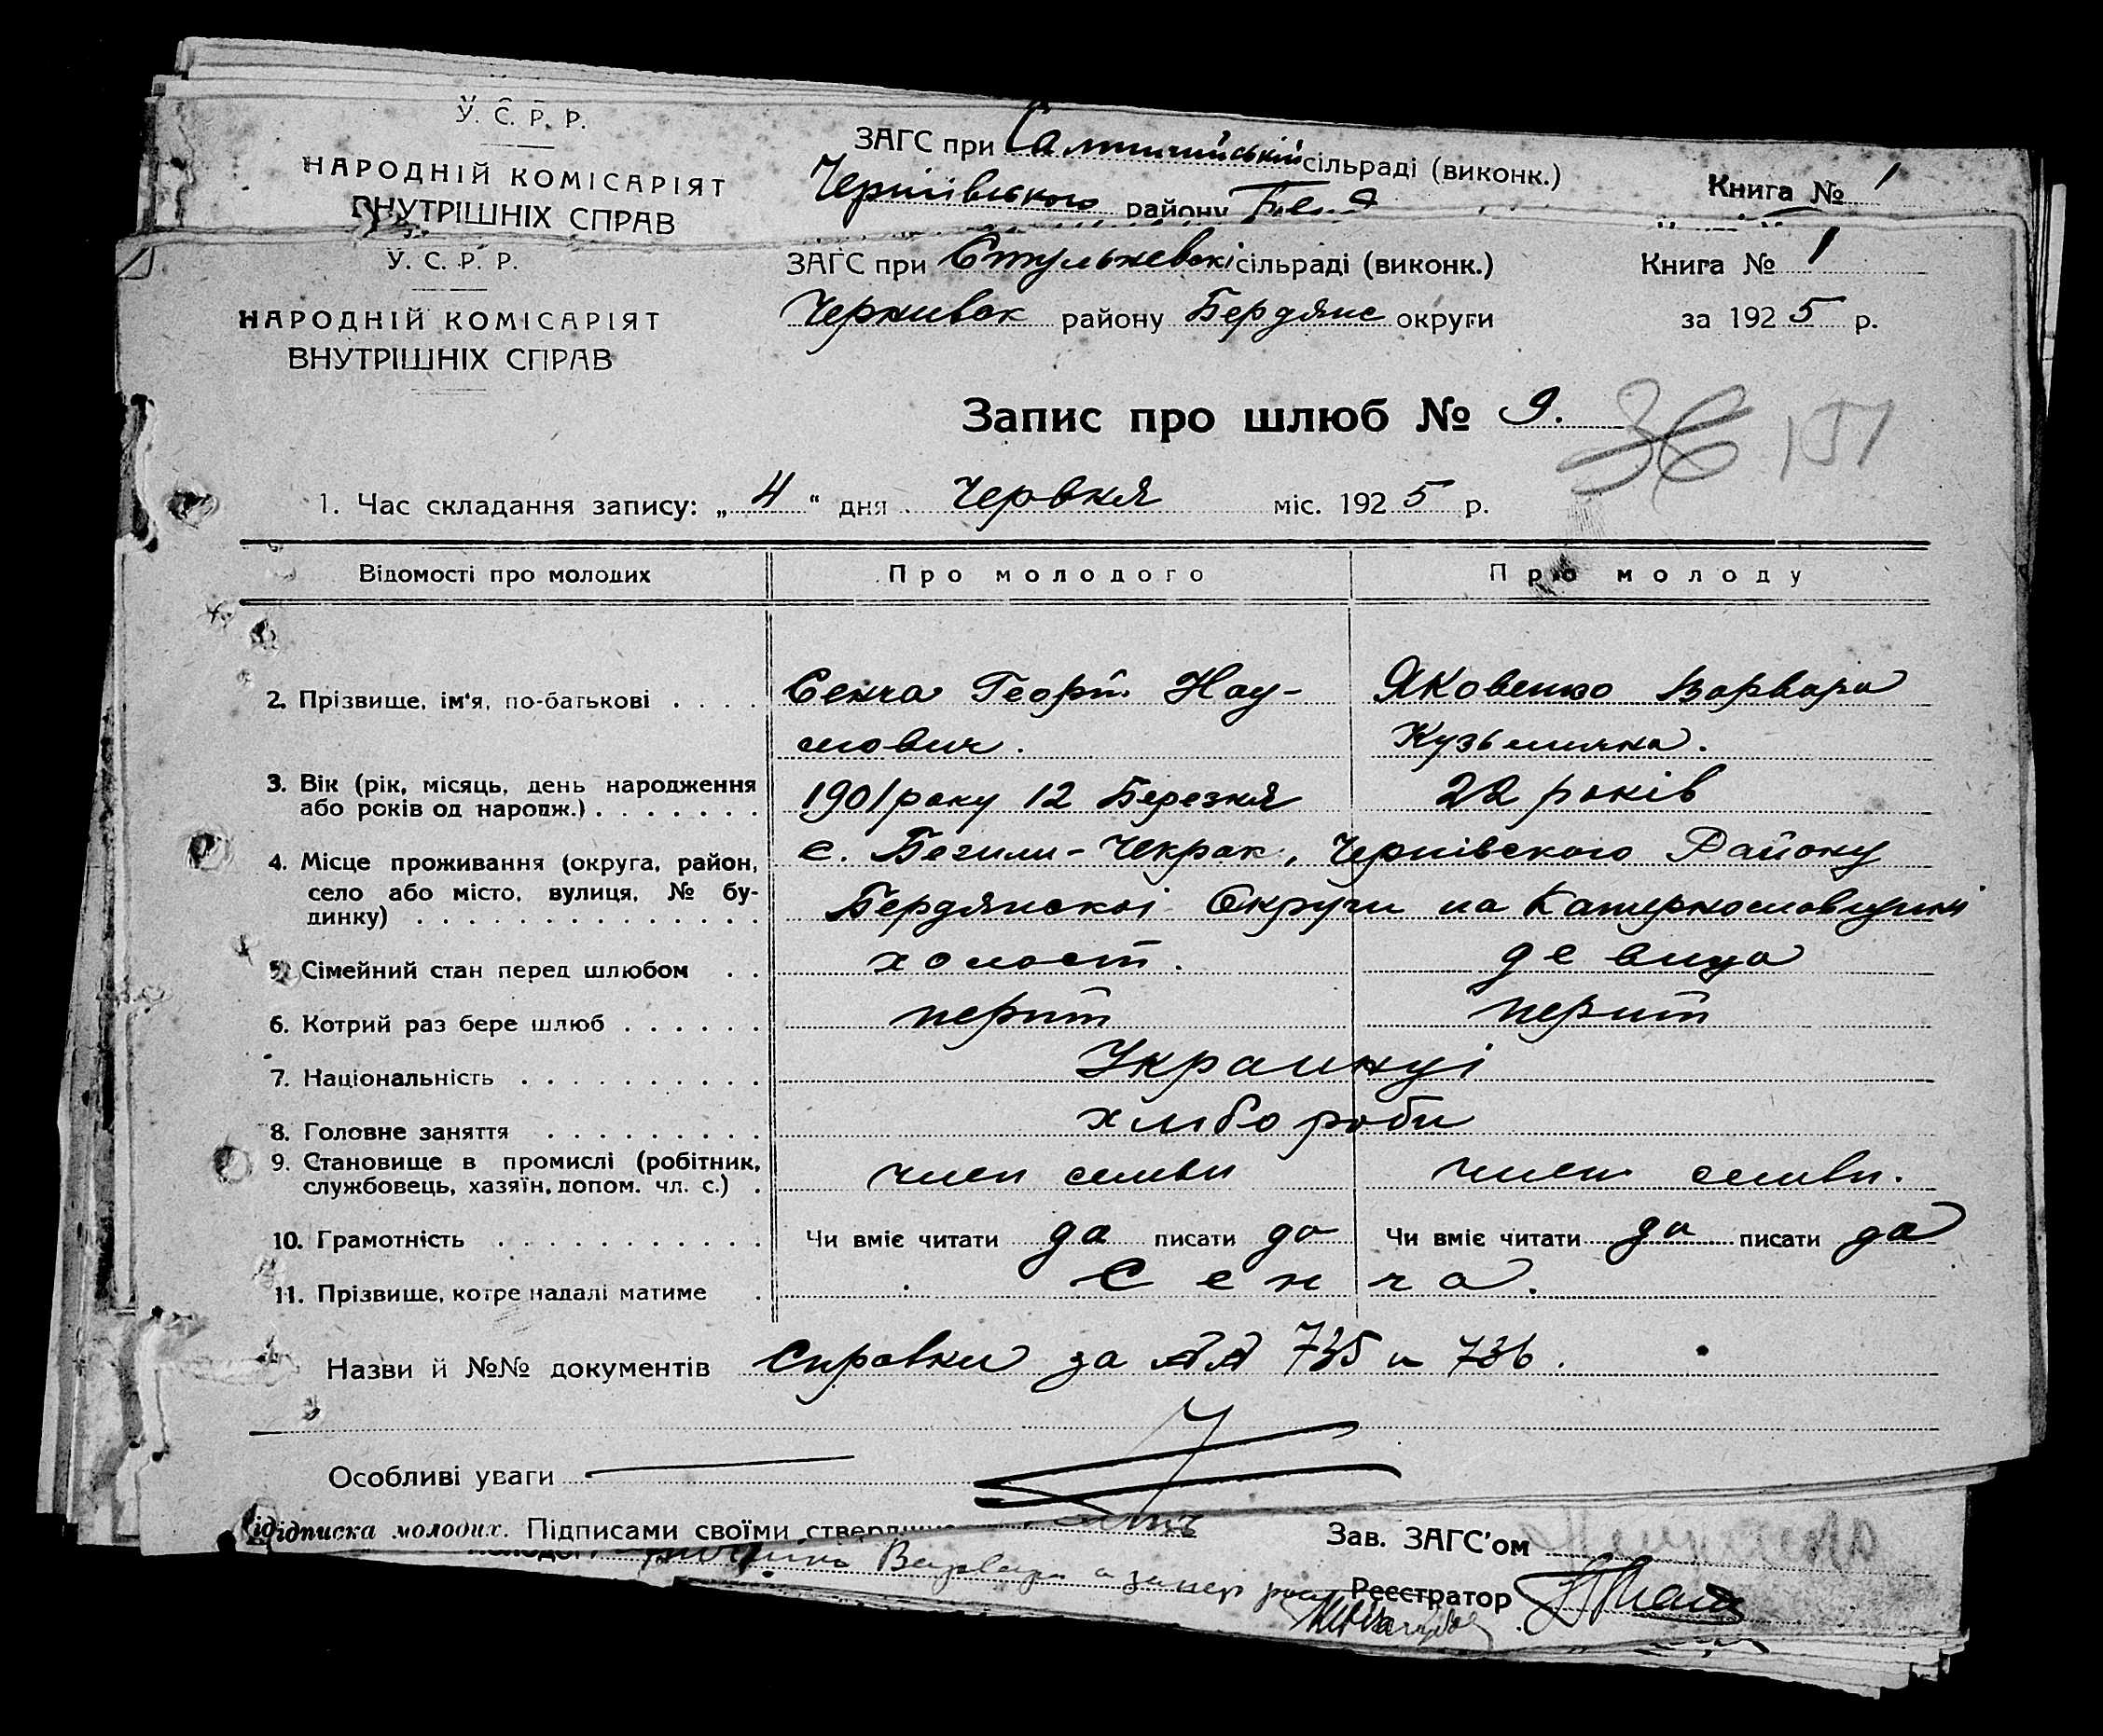 У. С. Р. Р.
НАРОДНІЙ КОМІСАРІЯТ
ВНУТРІШНІХ СПРАВ
ЗАГС при Салтичийській сільраді (виконк.)
району
Книга № 1
У. С. Р. Р.
НАРОДНІЙ КОМІСАРІЯТ
ВНУТРІШНІХ СПРАВ
ЗАГС при Стульневскі сільраді (виконк.)
Чернивск району Бердянс округи
Книга № 1
за 1925 р.
Запис про шлюб № 9. 36 151
1. Час складання запису: „ 4 “ дня Червня міс. 1925 р.
Відомості про молодих Про молодого Про молоду
2. Прізвище, ім'я, по-батькові . . . . Сенча Георгій Нау- Яковенко Варвара
мович. Кузьмична.
3. Вік (рік, місяць, день народження
або років од народж.) . . . . . . . 1901 року 12 Березня 22 років
4. Місце проживання (округа, район, с. Бегили-Чекрак, Чернівского Району
село або місто, вулиця, № бу-
динку) . . . . . . . . . . . . . . Бердянскоі Округи на Катернославщині
5. Сімейний стан перед шлюбом . . холост. девица
6. Котрий раз бере шлюб . . . . . . перший перший
7. Національність . . . . . . . . . . Украинці
8. Головне заняття . . . . . . . . . хлібороби
9. Становище в промислі (робітник,
службовець, хазяїн, допом. чл. с.) . член семьи член семьи.
10. Грамотність . . . . . . . . . . . Чи вміє читати да писати да Чи вміє читати да писати да
11. Прізвище, котре надалі матиме . Сенча.
Назви й №№ документів Справки за №№ 735 и 736.
Особливі уваги
Підписка молодих. Підписами своїми
Зав. ЗАГС'ом
Варвара
Реєстратор